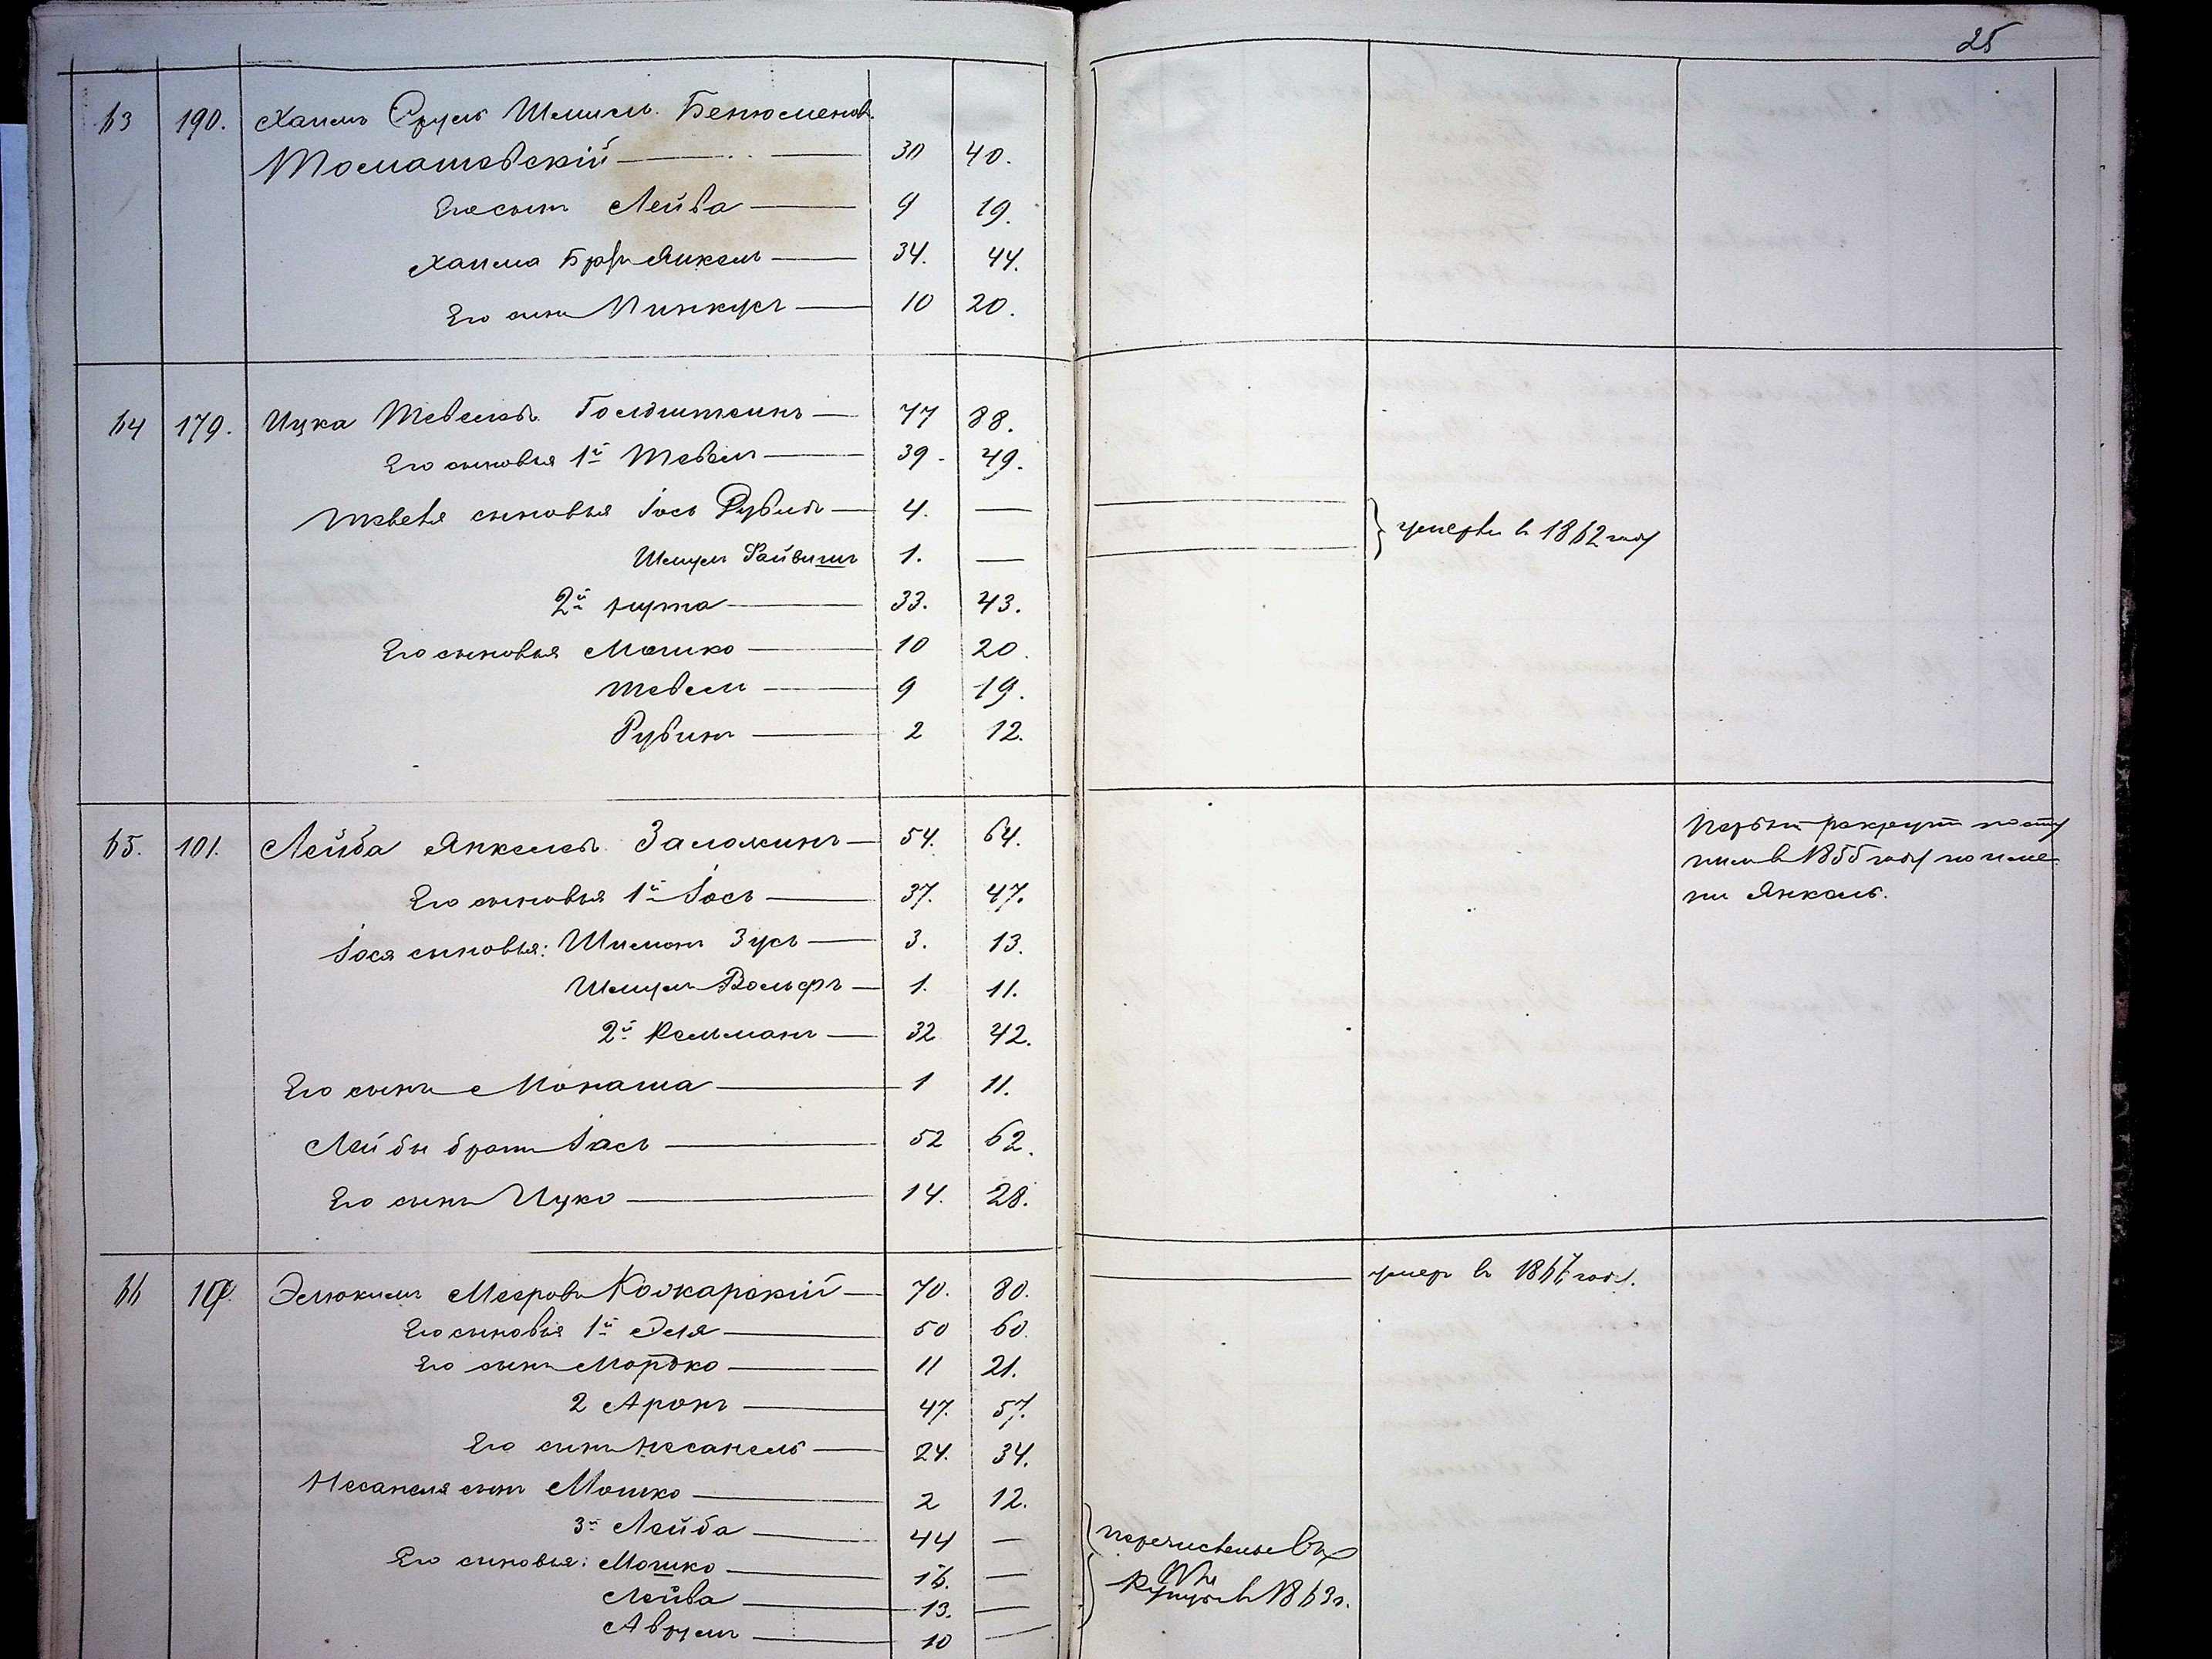 25
63 190. Хаимъ Сруль Шмуиль Бенюменов.
Томашевскій 30 40.
Его сынъ Лейба 9 19.
Хаима братъ Янкель 34. 44.
Его сынъ Пинкусъ 10 20.
64 179. Ицка Тевелевъ Голдштейнъ 77 88.
Его сыновья 1й Тевель 39. 49.
Тевеля сыновья Іось Рубинъ 4. —
Шмуль Файвишъ 1. —
умерли в 1862 году
2й 33. 43.
Его сыновья Мошко 10 20.
Тевель 9 19.
Рубинъ 2 12.
65. 101. Лейба Янкелев. Заложинъ 54. 64.
Первый рекрутъ посту
пил в 1855 году по име
ни Янкель.
Его сыновья 1й Іось 37. 47.
Іося сыновья: Шимонъ Зусь 3. 13.
Шмуль Вольфъ 1. 11.
2й Калманъ 32 42.
Его сынъ Монаша 1 11.
Лейбы братъ Іось 52 62.
Его сынъ Ицко 14. 28.
66 Элюкимъ Мееровъ 70. 80.
умер в 186 году.
Его сыновья 1й Эля 50 60.
Его сынъ Мордко 11 21.
2 Аронъ 47. 57.
Его сынъ Несанель 24. 34.
Несанеля сынъ Мошко 2 12.
3й Лейба 44 —
Его сыновья: Мошко 16. —
Лейба 13. —
Аврумъ 10 —
перечислены въ
купцы в 1863 г.